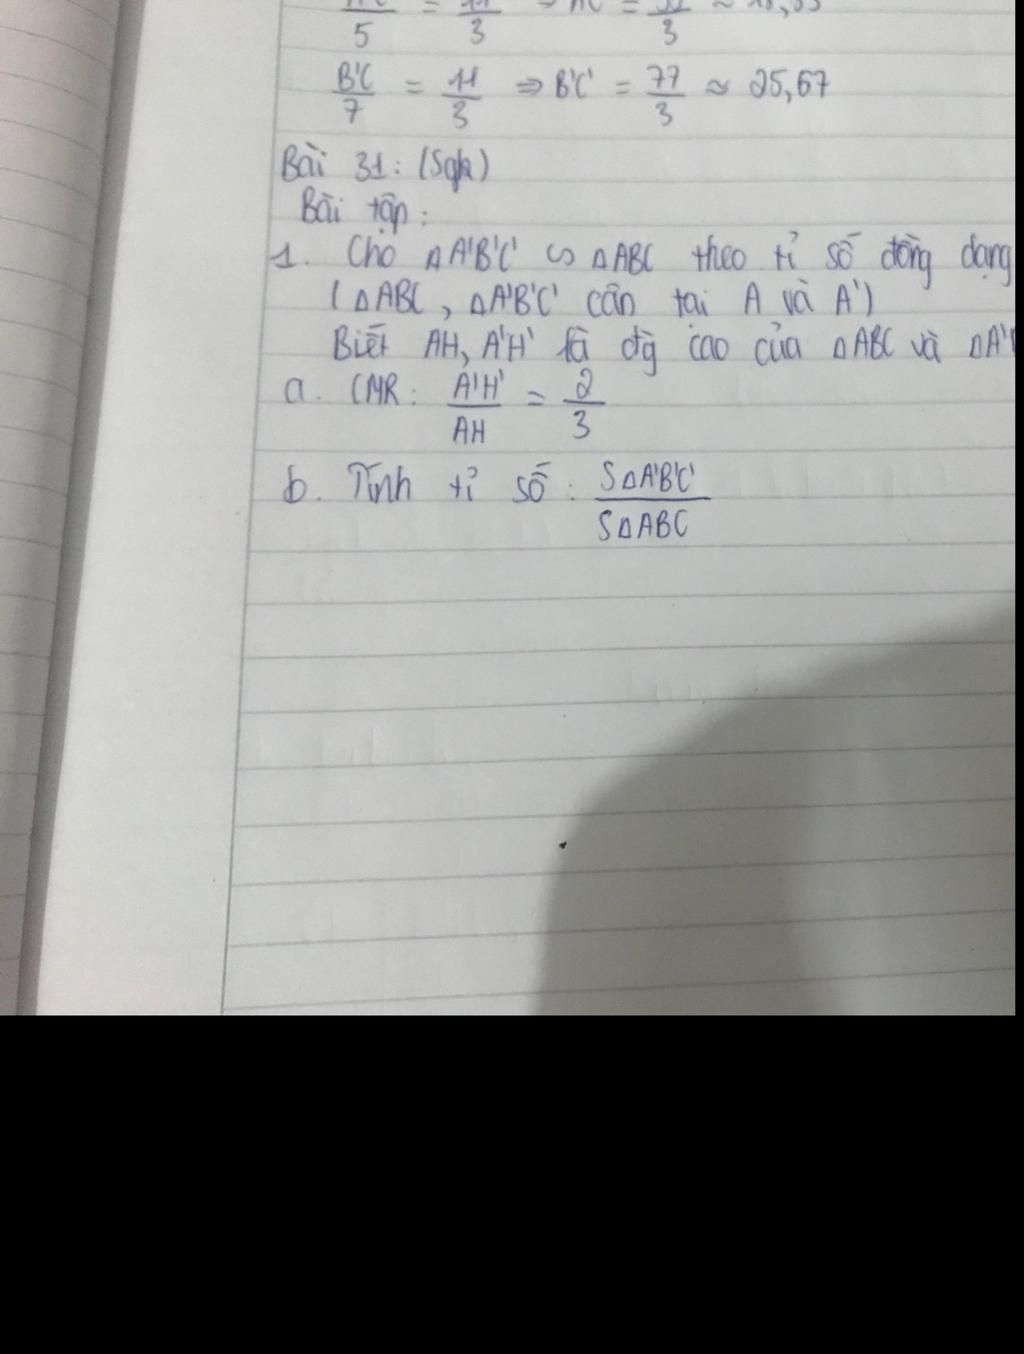 5 3 3
B'C' / 7 = 11 / 3 ⇒ B'C' = 77 / 3 ≈ 25,67
Bài 31: (Sgk)
Bài tập:
1. Cho ΔA'B'C' ∽ ΔABC theo tỉ số đồng dạng
(ΔABC, ΔA'B'C' cân tại A và A')
Biết AH, A'H' là đg cao của ΔABC và ΔA'
a. CMR: A'H' / AH = 2 / 3
b. Tính tỉ số: SΔA'B'C' / SΔABC